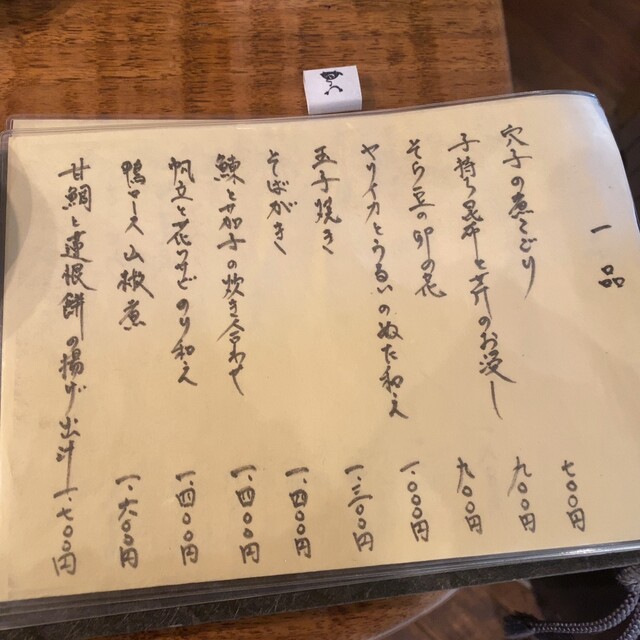 一品
穴子の煮こごり 七〇〇円
子持ち昆布と芹のお浸し 九〇〇円
そら豆の卯の花 九〇〇円
ヤリイカとうるいのぬた和え 一、〇〇〇円
玉子焼き 一、三〇〇円
そばがき 一、四〇〇円
鰊と茄子の炊き合わせ 一、四〇〇円
帆立と花わさびのり和え 一、四〇〇円
鴨ロース山椒煮 一、六〇〇円
甘鯛と蓮根餅の揚げ出汁 一、七〇〇円